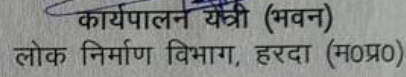 कार्यपालन यंत्री (भवन)
लोक निर्माण विभाग, हरदा (म०प्र०)